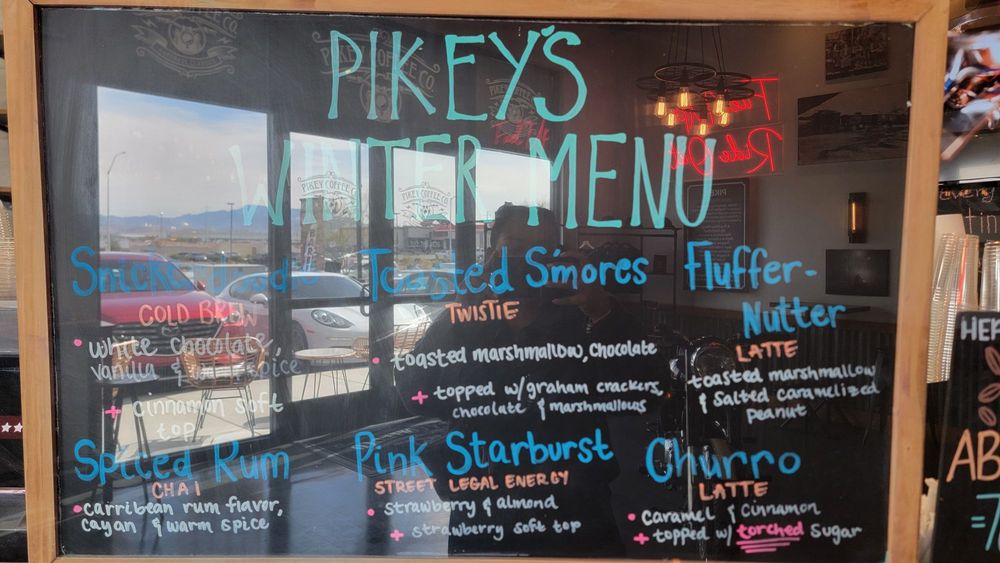 PIKEY'S
WINTER MENU
Snickerdoodle
COLD BREW
• white chocolate,
vanilla & spice
+ cinnamon soft
top
Toasted S'mores
TWISTIE
• toasted marshmallow, chocolate
+ topped w/graham crackers,
chocolate & marshmallows
Fluffer-
Nutter
LATTE
• toasted marshmallow
& salted caramelized
peanut
Spiced Rum
CHAI
• carribean rum flavor,
cayan & warm spice
Pink Starburst
STREET LEGAL ENERGY
• strawberry & almond
+ strawberry soft top
Churro
LATTE
• caramel & cinnamon
+ topped w/ torched sugar
PIKEY COFFEE CO
PIKEY COFFEE CO
Ride
HER
AB